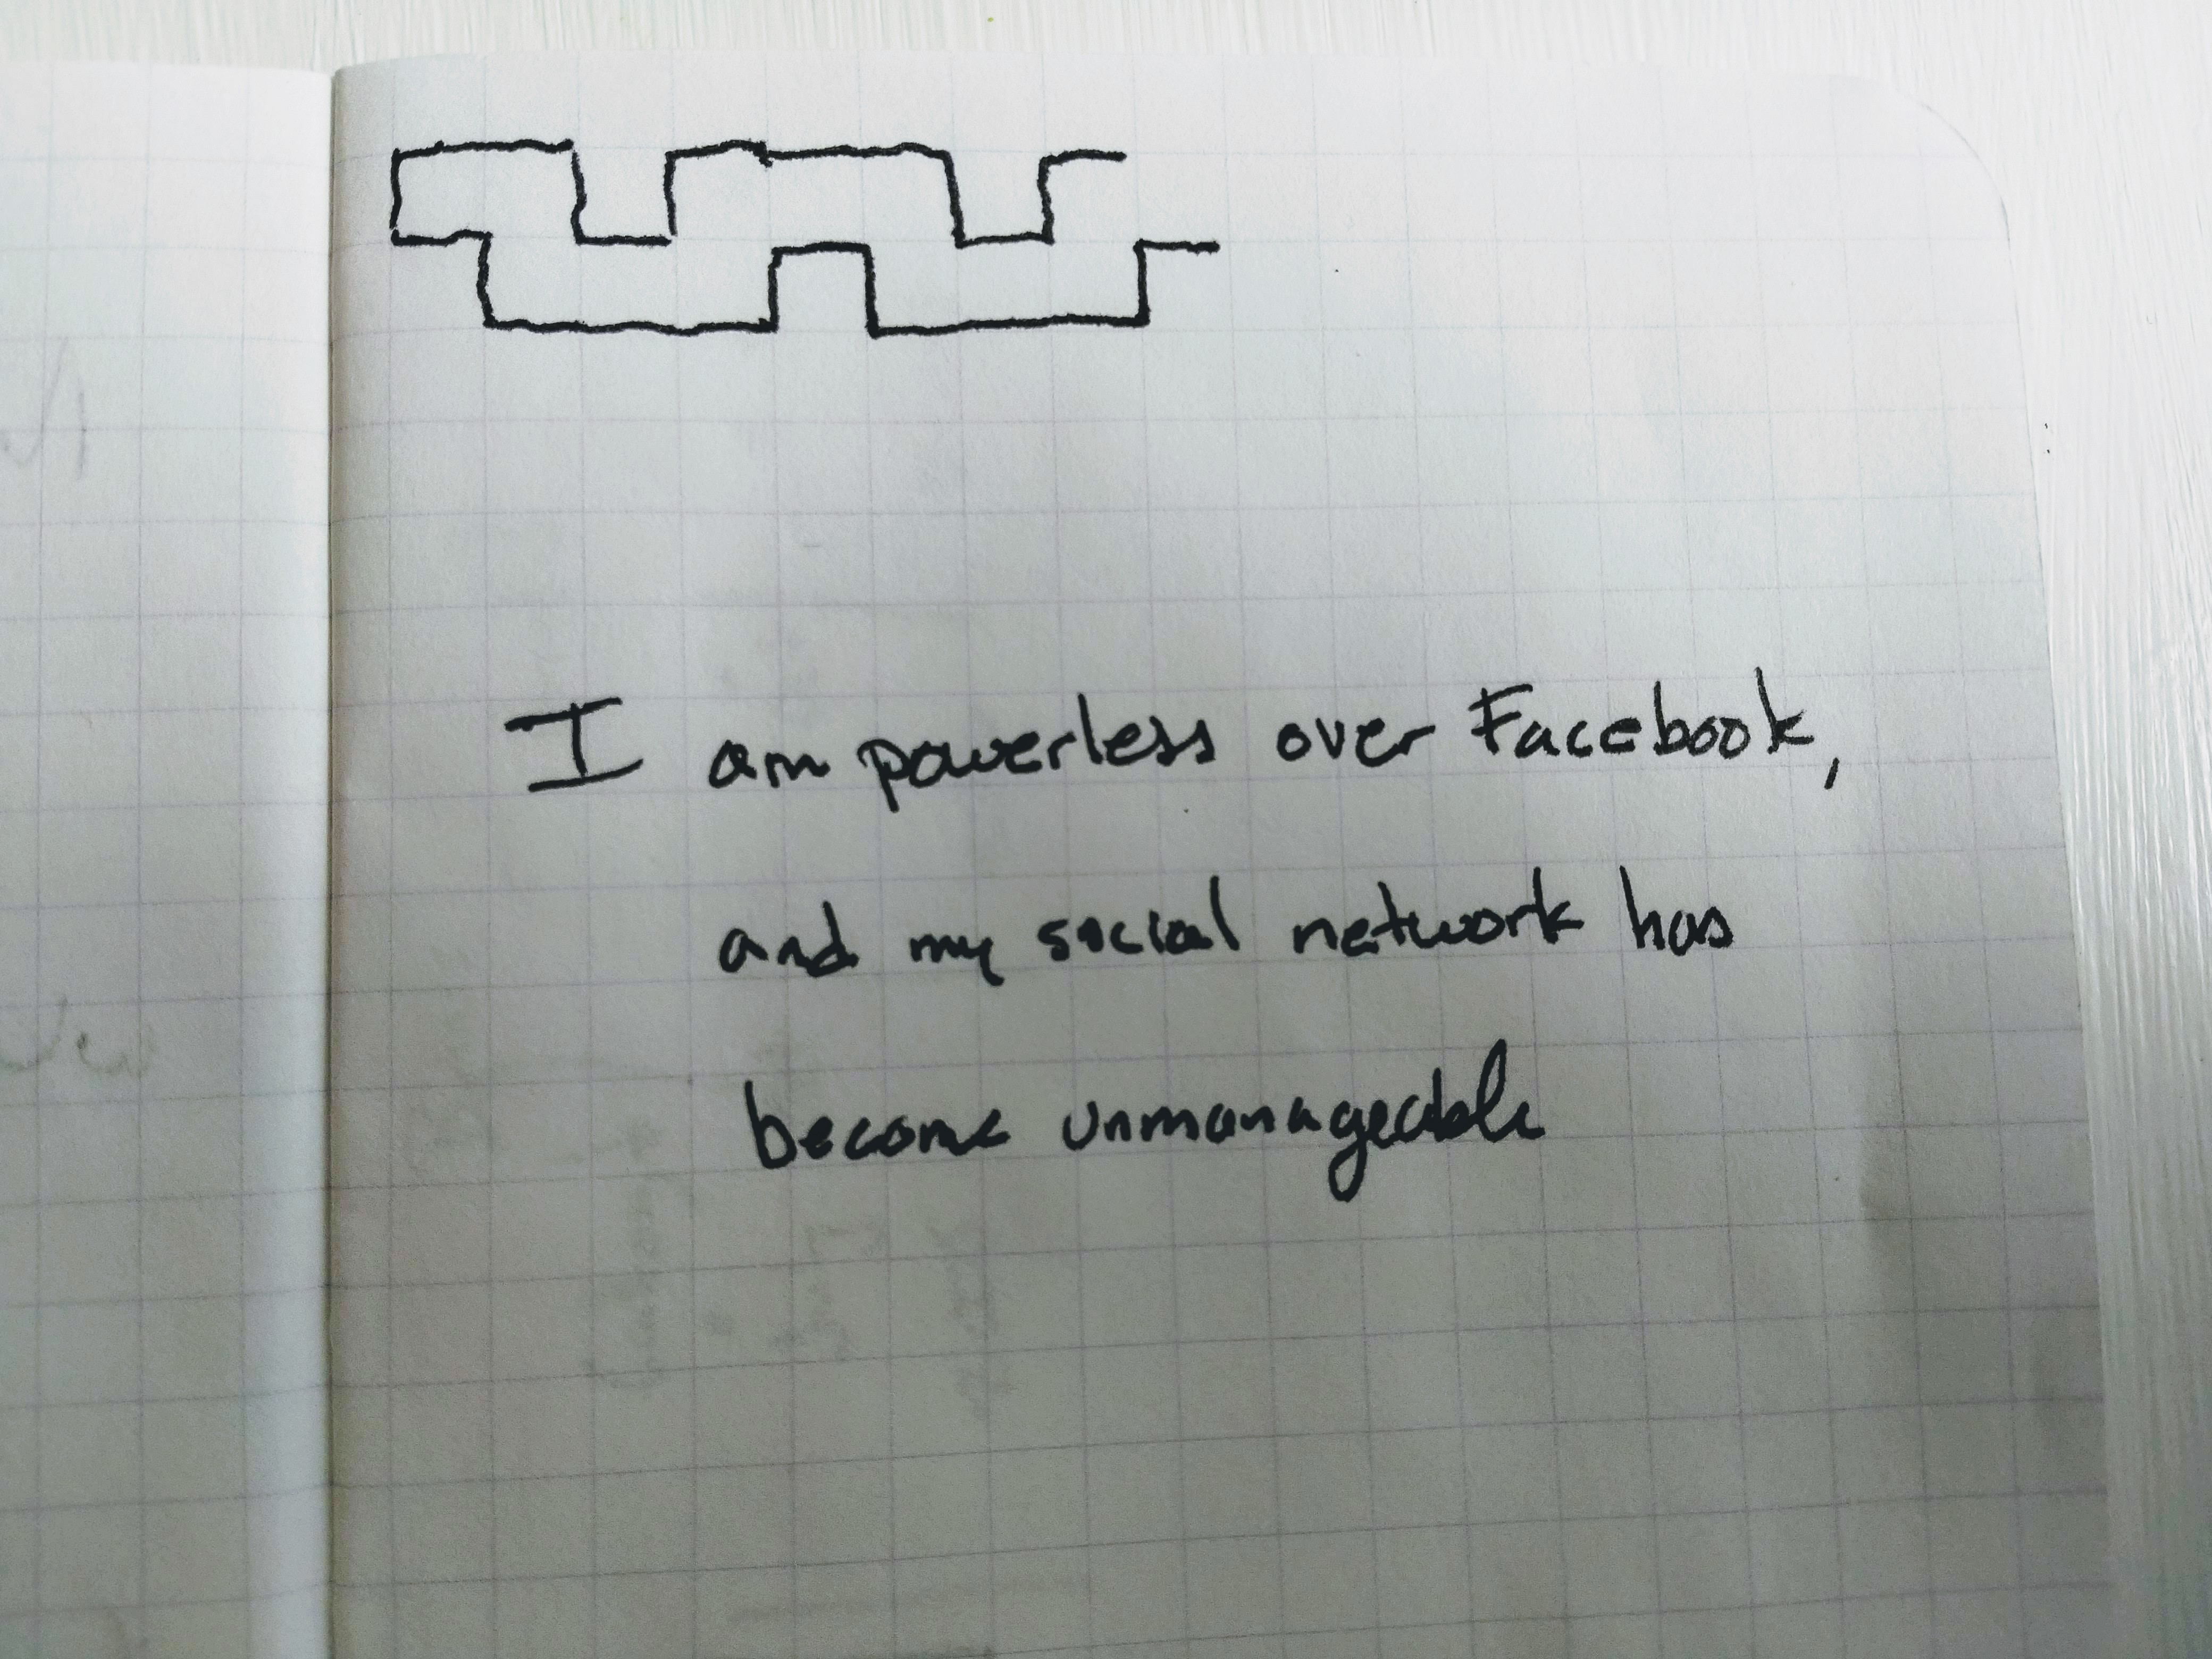 I am powerless over Facebook,
and my social network has
become unmanageable